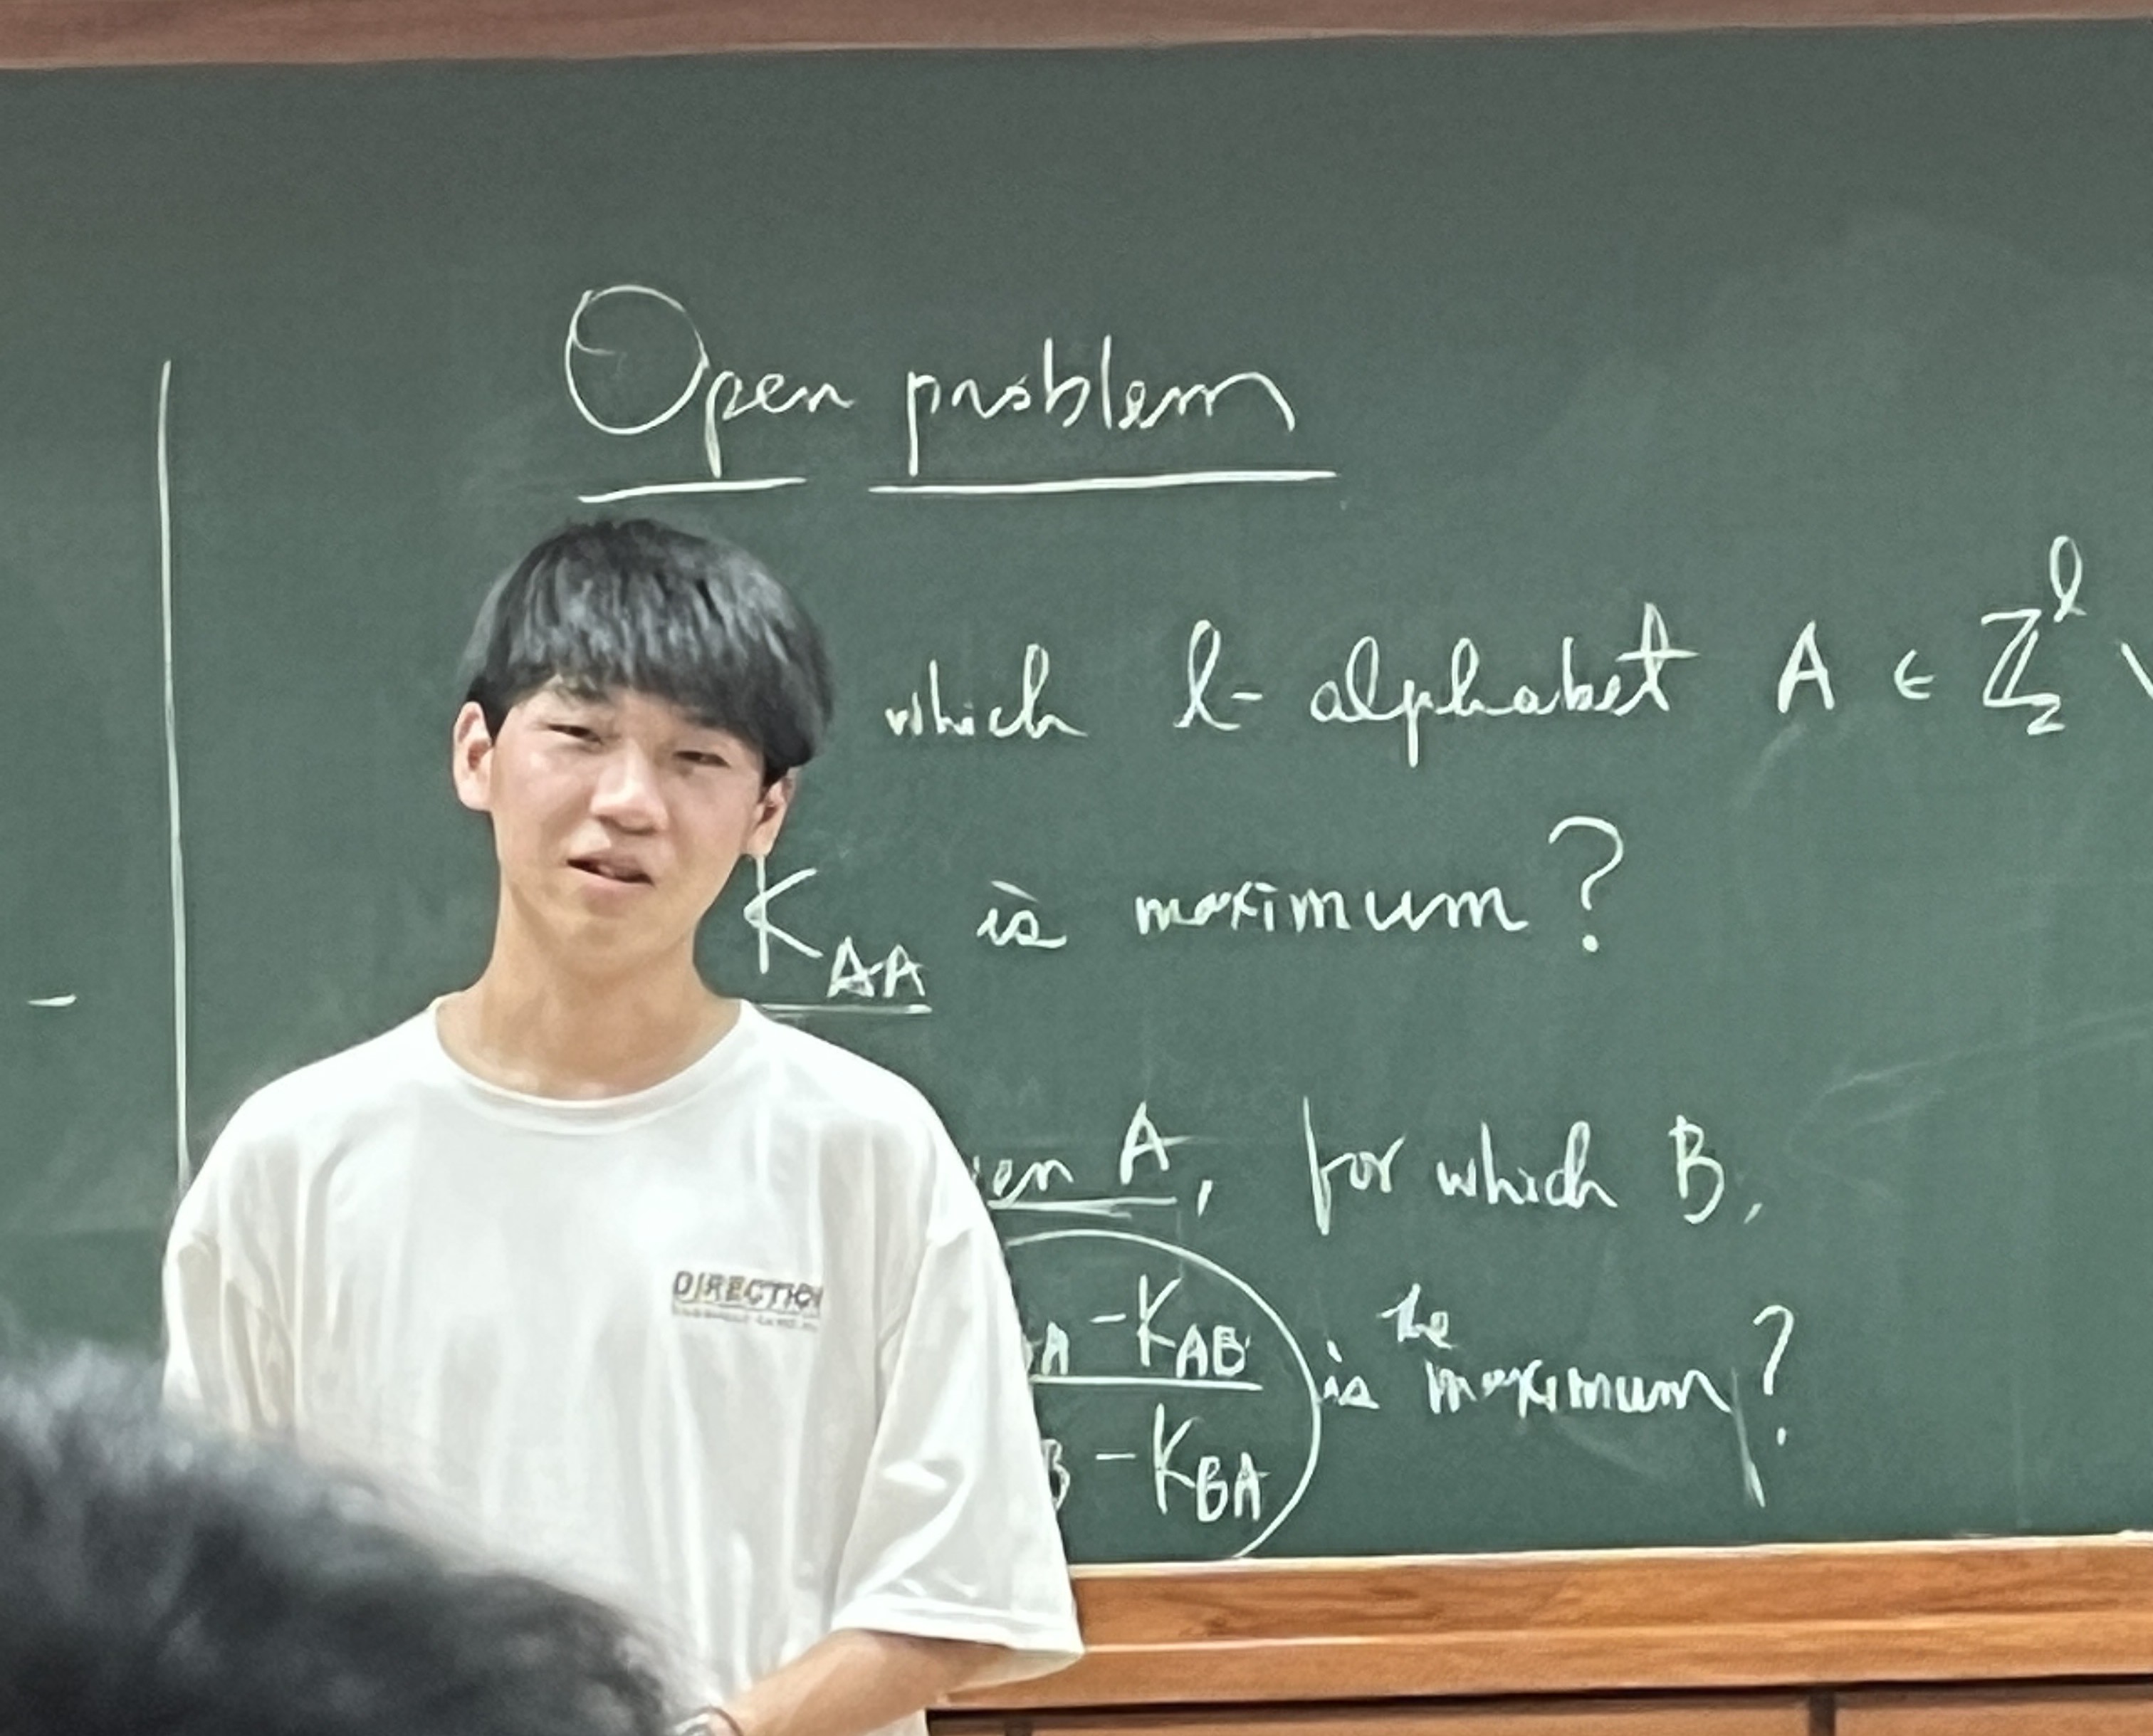 Open problem
which l-alphabet A ∈ ℤ₂ˡ \
K_AA is maximum?
A, for which B,
A - K_AB is the maximum?
B - K_BA
DIRECTION